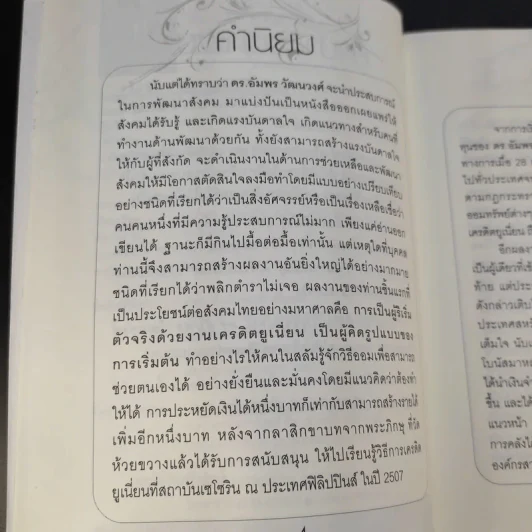 คำนิยม
นับแต่ได้ทราบว่า ดร.อัมพร วัฒนวงศ์ จะนำประสบการณ์
ในการพัฒนาสังคม มาแบ่งปันเป็นหนังสือออกเผยแพร่ให้
สังคมได้รับรู้ และเกิดแรงบันดาลใจ เกิดแนวทางสำหรับคนที่
ทำงานด้านพัฒนาด้วยกัน ทั้งยังสามารถสร้างแรงบันดาลใจ
ให้กับผู้ที่สังกัด จะดำเนินงานในด้านการช่วยเหลือและพัฒนา
สังคมให้มีโอกาสตัดสินใจลงมือทำโดยมีแบบอย่างเปรียบเทียบ
อย่างชนิดที่เรียกได้ว่าเป็นสิ่งอัศจรรย์หรือเป็นเรื่องเหลือเชื่อว่า
คนคนหนึ่งที่มีความรู้ประสบการณ์ไม่มาก เพียงแค่อ่านออก
เขียนได้ ฐานะก็มีกินไปมื้อต่อมื้อเท่านั้น แต่เหตุใดที่บุคคล
ท่านนี้จึงสามารถสร้างผลงานอันยิ่งใหญ่ได้อย่างมากมาย
ชนิดที่เรียกได้ว่าพลิกตำราไม่เจอ ผลงานของท่านชิ้นแรกที่
เป็นประโยชน์ต่อสังคมไทยอย่างมหาศาลคือ การเป็นผู้ริเริ่ม
ตัวจริงด้วยงานเครดิตยูเนี่ยน เป็นผู้คิดรูปแบบของ
การเริ่มต้น ทำอย่างไรให้คนในสลัมรู้จักวิธีออมเพื่อสามารถ
ช่วยตนเองได้ อย่างยั่งยืนและมั่นคงโดยมีแนวคิดว่าต้องทำ
ให้ได้ การประหยัดเงินได้หนึ่งบาทก็เท่ากับสามารถสร้างรายได้
เพิ่มอีกหนึ่งบาท หลังจากลาสิกขาบทจากพระภิกษุ ที่วัด
ห้วยขวางแล้วได้รับการสนับสนุน ให้ไปเรียนรู้วิธีการเครดิต
ยูเนี่ยนที่สถาบันเซโซริน ณ ประเทศฟิลิปปินส์ ในปี 2507
จากการ
ทุนของ ดร อัมพร
ทางการเมื่อ 28
ไปทั่วประเทศจา
ตามกฎกระทรว
ออมทรัพย์ต่าง
เครดิตยูเนี่ยน
อีกผลงา
เป็นผู้เดียวที่เข้
ท้าย แต่ประ
ดังกล่าวเติบโ
ประเทศสห
เต็มใจ นับเ
โบนัสมาห
ได้นำเงินจำ
ขึ้น และได้
แนวหน้า
การคลังไ
องค์กรสา